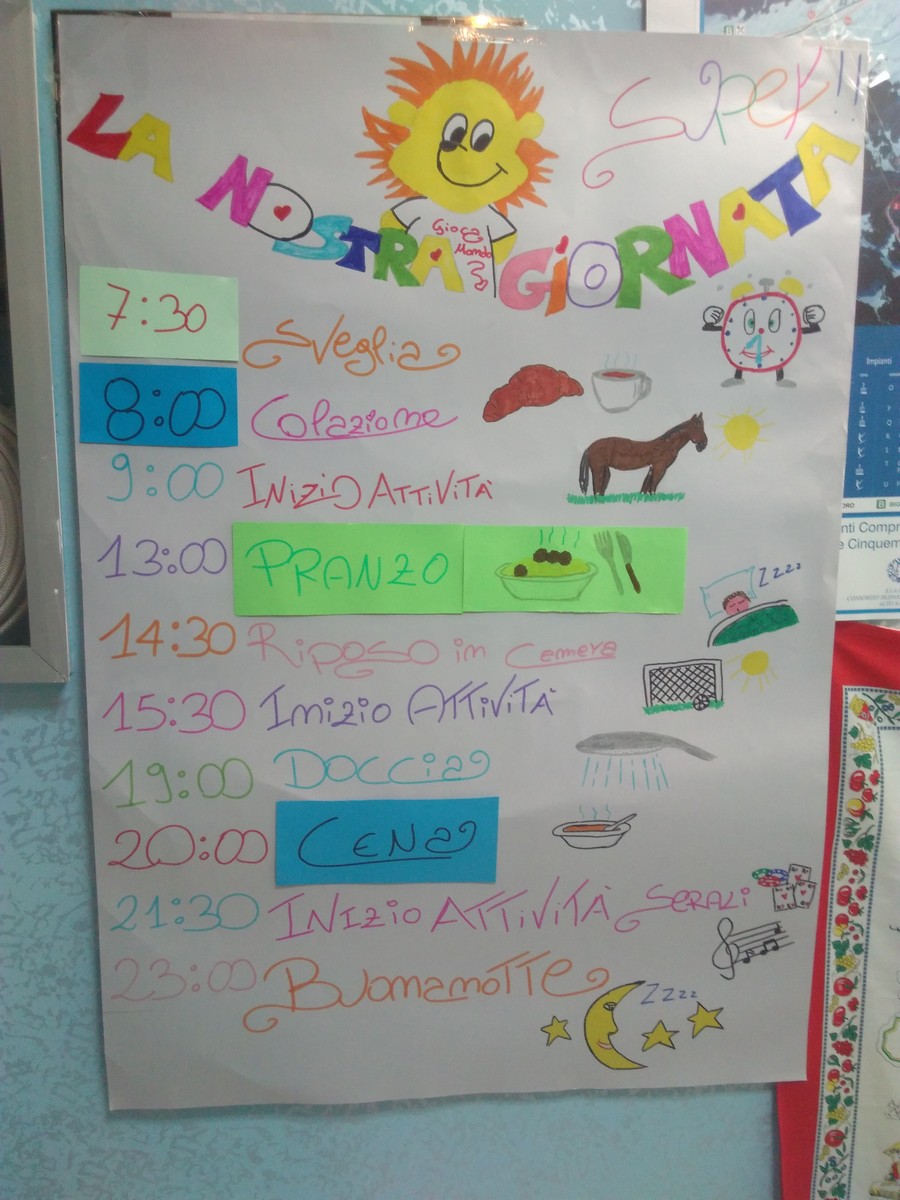 SUPER!!
LA NOSTRA GIORNATA
Gioca
Mondo
7:30 Sveglia
8:00 Colazione
9:00 INIZIO ATTIVITÀ
13:00 PRANZO
14:30 Riposo in Camera
15:30 Inizio ATTIVITÀ
Zzzz
19:00 DOCCIA
20:00 CENA
21:30 INIZIO ATTIVITÀ SERALI
23:00 BUONANOTTE
Zzzz
Impianti